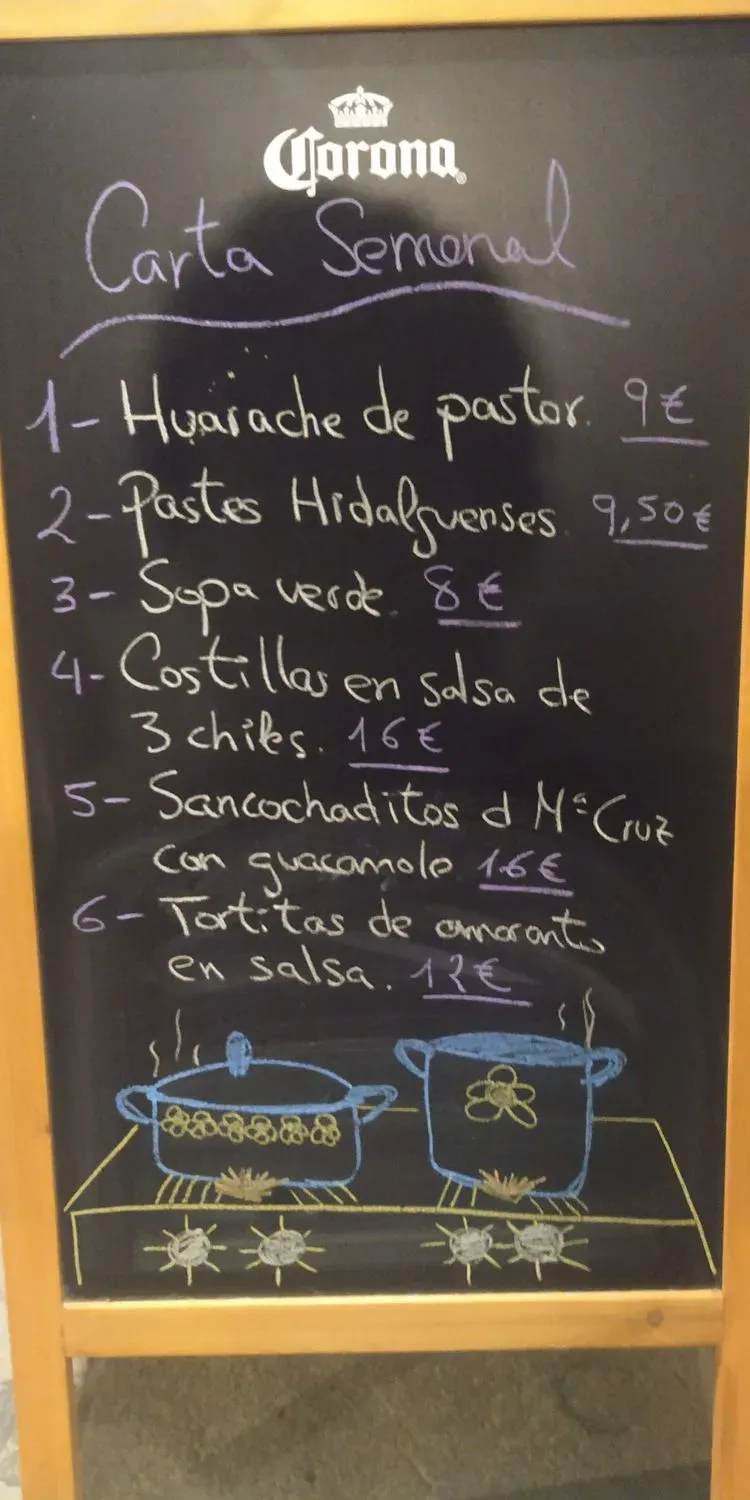 Corona
Carta Semanal
1- Huarache de pastor. 9€
2- Pastes Hidalguenses. 9,50€
3- Sopa verde. 8€
4- Costillas en salsa de
3 chiles. 16€
5- Sancochaditos d Mª Cruz
con guacamole 16€
6- Tortitas de amaranto
en salsa. 12€